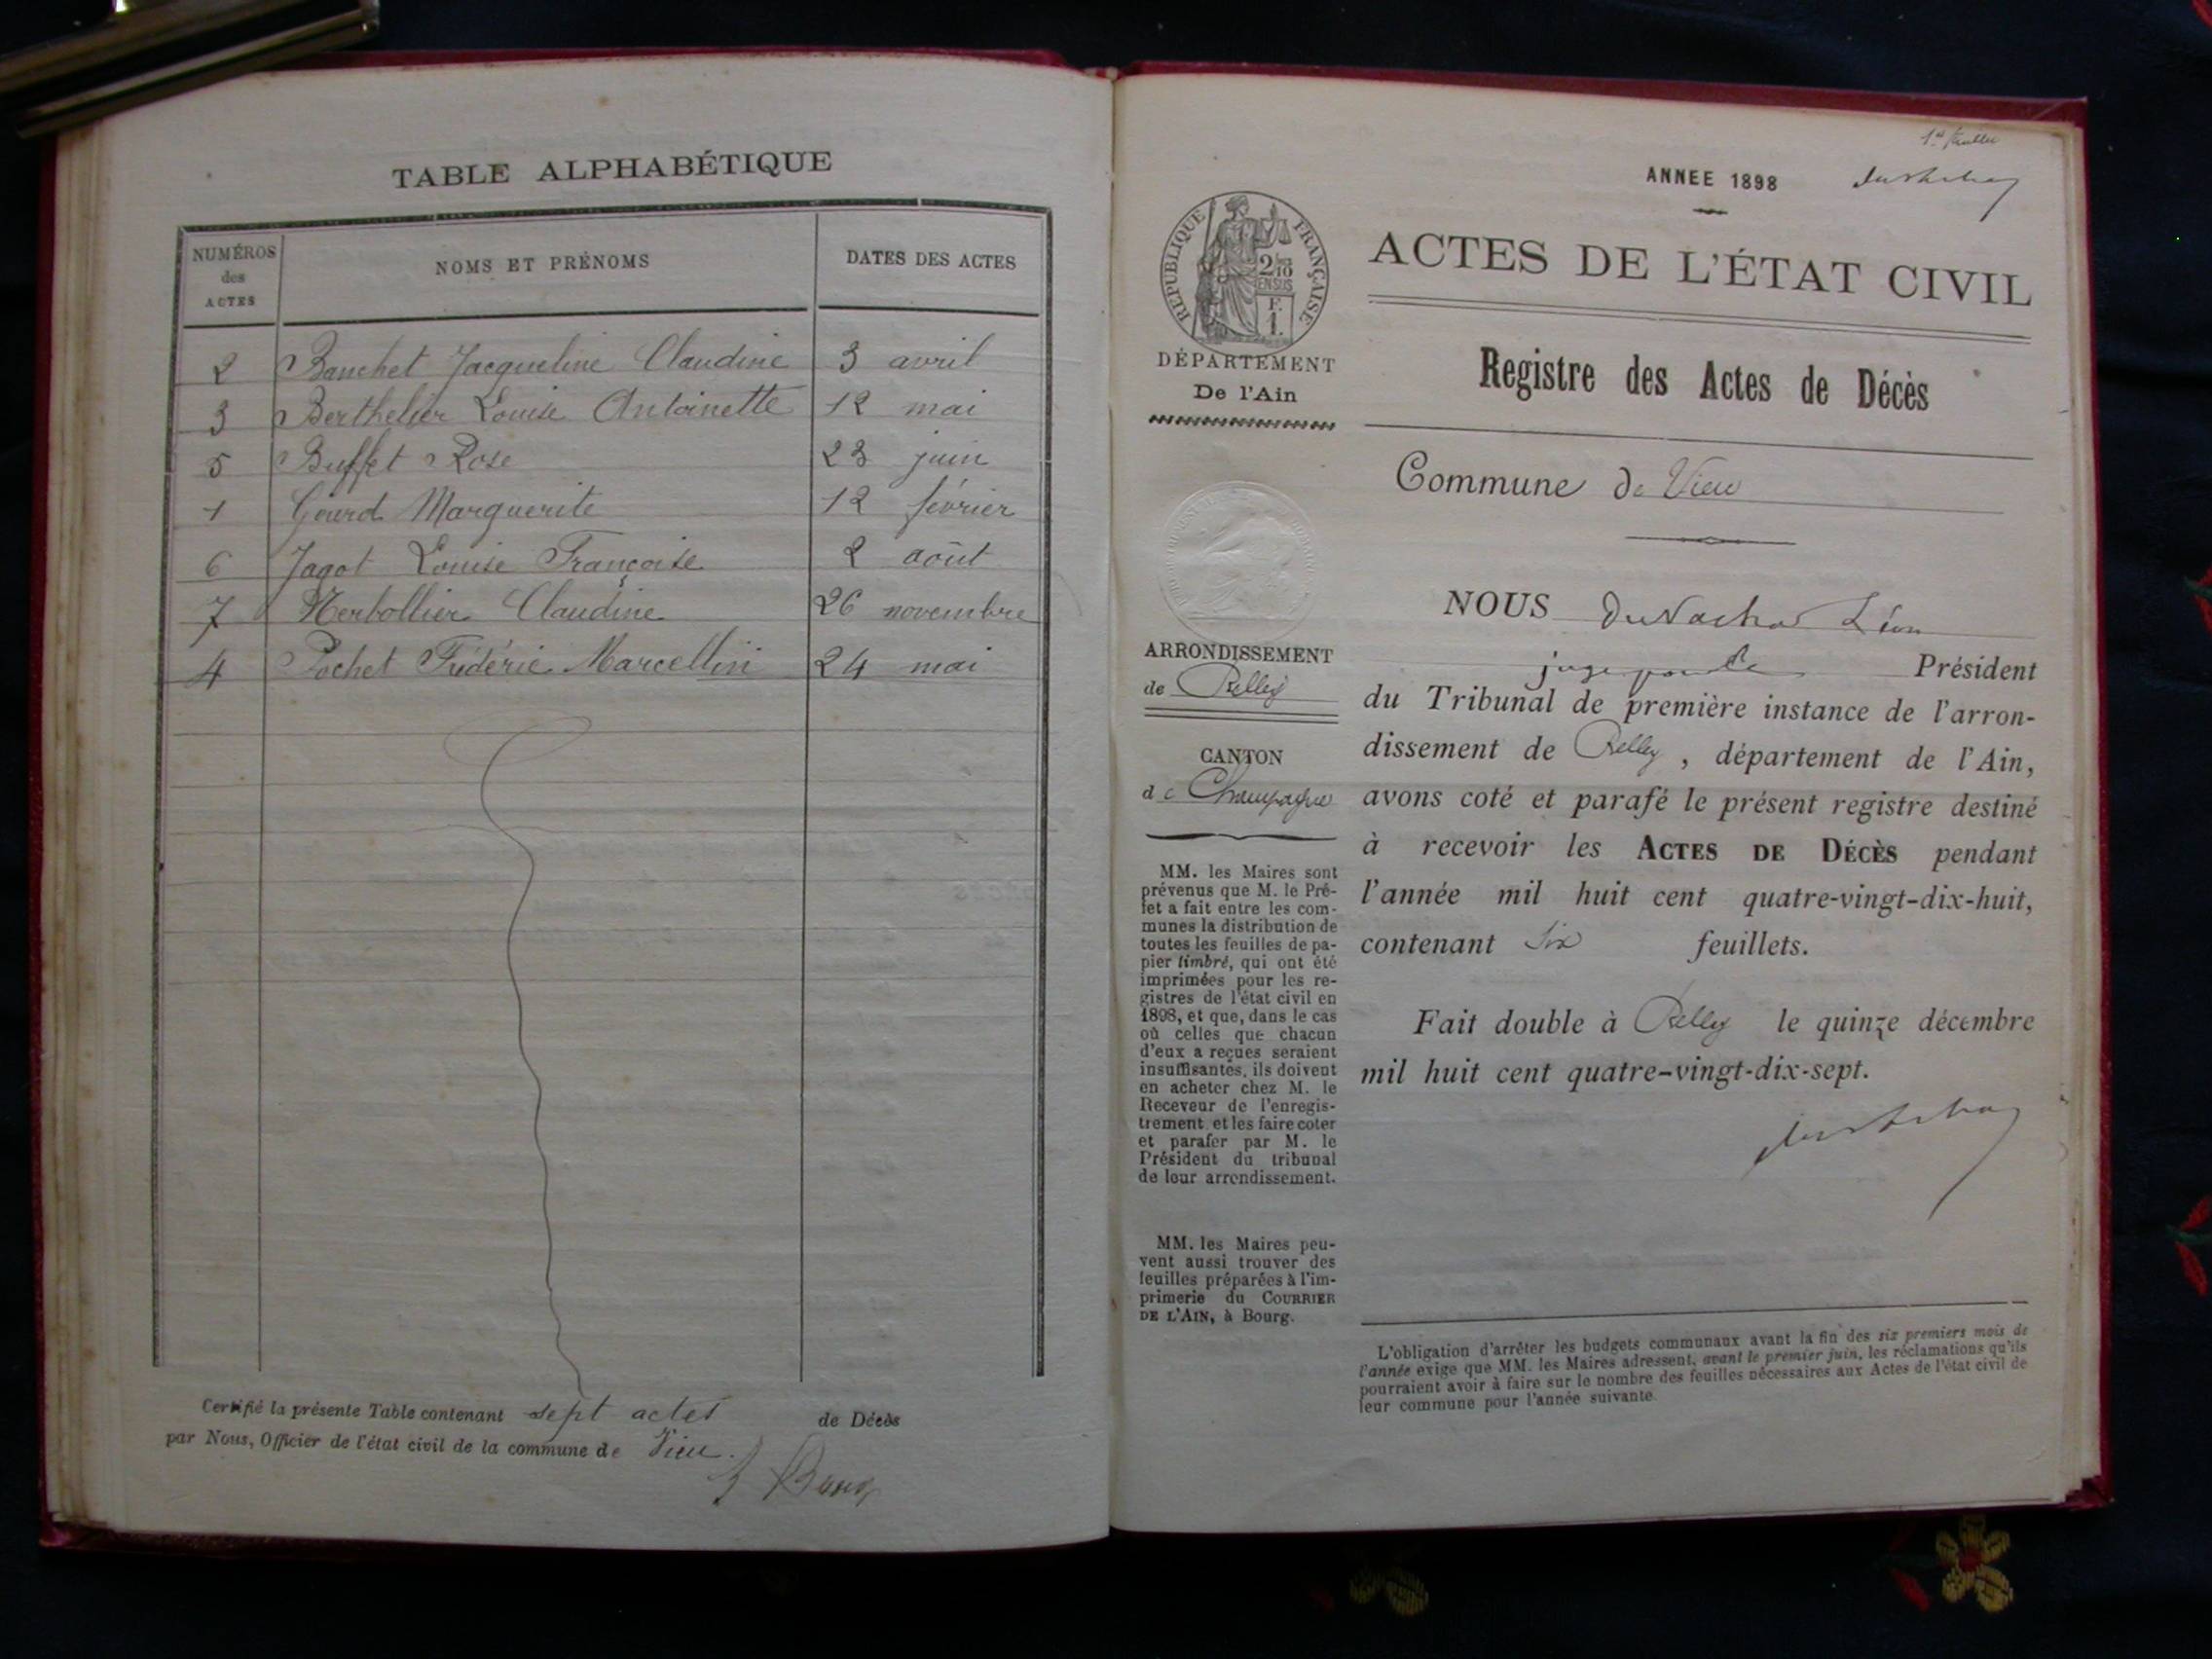 TABLE ALPHABÉTIQUE
NUMÉROS des ACTES
NOMS ET PRÉNOMS
DATES DES ACTES
2 Banchet Jacqueline Claudine 3 avril
3 Berthelier Louise Antoinette 12 mai
5 Buffet Rose 23 juin
1 Gourd Marguerite 12 février
6 Jagot Louise Françoise 2 août
7 Merbollier Claudine 26 novembre
4 Pochet Frédéric Marcellin 24 mai
Certifié la présente Table contenant sept actes de Décès
par Nous, Officier de l'état civil de la commune de Vieu.
ANNEE 1898
RÉPUBLIQUE FRANÇAISE
2/10 EN SUS
F. 1.
DÉPARTEMENT
De l'Ain
ARRONDISSEMENT
de Belley
CANTON
de Champagne
MM. les Maires sont
prévenus que M. le Pré-
fet a fait entre les com-
munes la distribution de
toutes les feuilles de pa-
pier timbré, qui ont été
imprimées pour les re-
gistres de l'état civil en
1898, et que, dans le cas
où celles que chacun
d'eux a reçues seraient
insuffisantes, ils doivent
en acheter chez M. le
Receveur de l'enregis-
trement et les faire coter
et parafer par M. le
Président du tribunal
de leur arrondissement.
MM. les Maires peu-
vent aussi trouver des
feuilles préparées à l'im-
primerie du COURRIER
DE L'AIN, à Bourg.
ACTES DE L'ÉTAT CIVIL
Registre des Actes de Décès
Commune de Vieu
NOUS Léon
juge Président
du Tribunal de première instance de l'arron-
dissement de Belley, département de l'Ain,
avons coté et parafé le présent registre destiné
à recevoir les ACTES DE DÉCÈS pendant
l'année mil huit cent quatre-vingt-dix-huit,
contenant six feuillets.
Fait double à Belley le quinze décembre
mil huit cent quatre-vingt-dix-sept.
L'obligation d'arrêter les budgets communaux avant la fin des six premiers mois de
l'année exige que MM. les Maires adressent, avant le premier juin, les réclamations qu'ils
pourraient avoir à faire sur le nombre des feuilles nécessaires aux Actes de l'état civil de
leur commune pour l'année suivante.